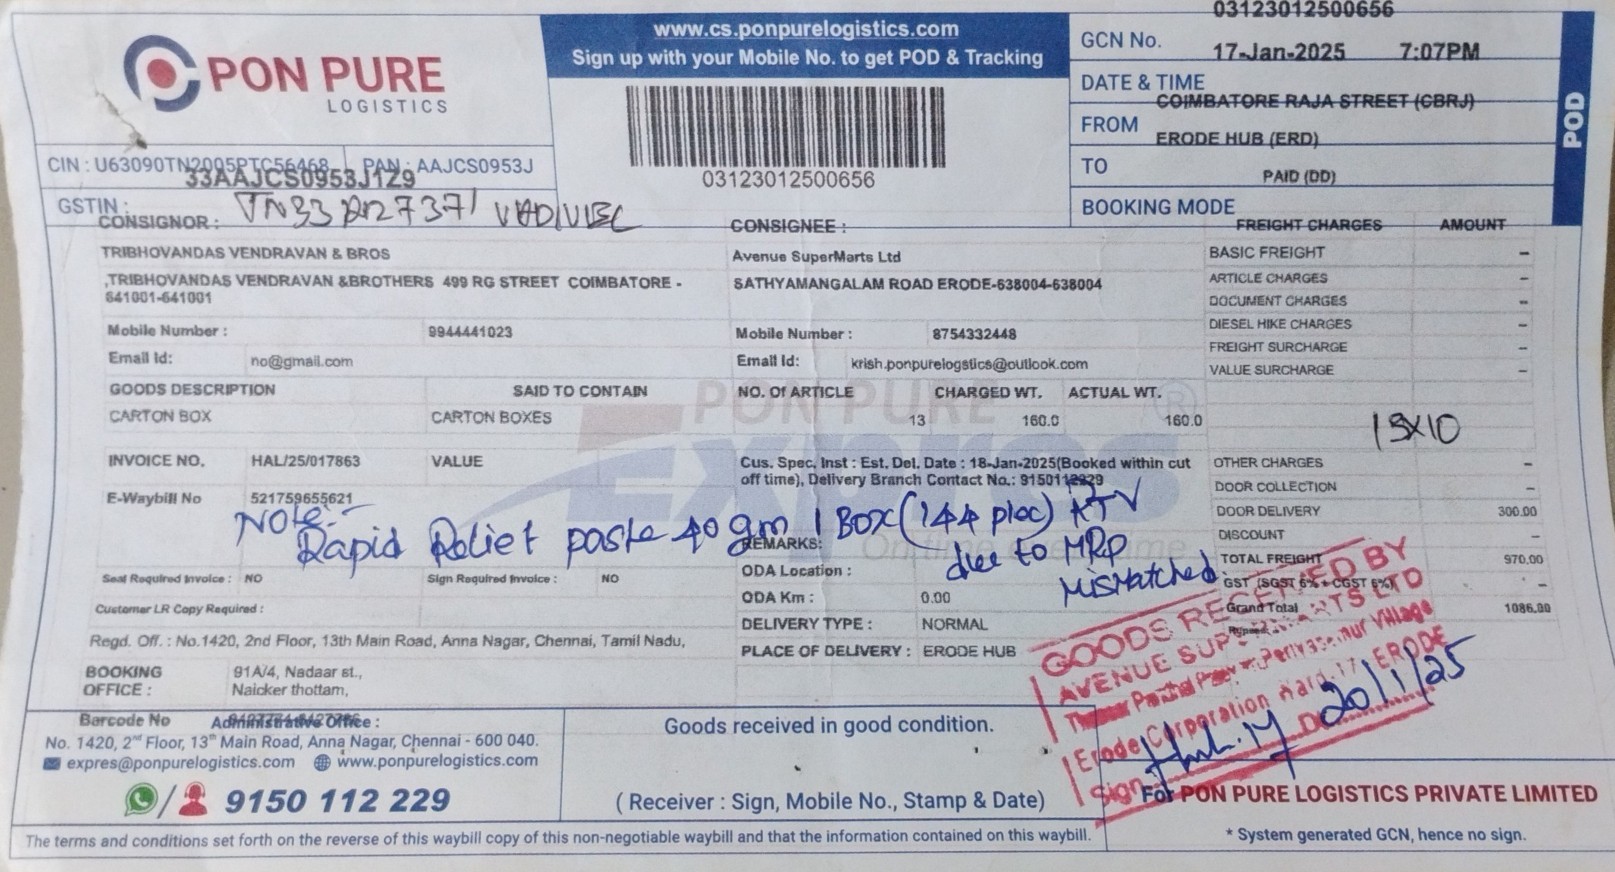 03123012500656
PON PURE
LOGISTICS
www.cs.ponpurelogistics.com
Sign up with your Mobile No. to get POD & Tracking
03123012500656
GCN No.
17-Jan-2025 7:07PM
DATE & TIME
COIMBATORE RAJA STREET (CBRJ)
FROM
ERODE HUB (ERD)
TO
PAID (DD)
BOOKING MODE
POD
CIN : U63090TN2005PTC56468 PAN : AAJCS0953J
33AAJCS0953J1Z9
GSTIN :
CONSIGNOR :
TRIBHOVANDAS VENDRAVAN & BROS
,TRIBHOVANDAS VENDRAVAN &BROTHERS 499 RG STREET COIMBATORE -
641001-641001
Mobile Number : 9944441023
Email Id: no@gmail.com
CONSIGNEE :
Avenue SuperMarts Ltd
SATHYAMANGALAM ROAD ERODE-638004-638004
Mobile Number : 8754332448
Email Id: krish.ponpurelogstics@outlook.com
FREIGHT CHARGES AMOUNT
BASIC FREIGHT -
ARTICLE CHARGES -
DOCUMENT CHARGES -
DIESEL HIKE CHARGES -
FREIGHT SURCHARGE -
VALUE SURCHARGE -
GOODS DESCRIPTION SAID TO CONTAIN NO. Of ARTICLE CHARGED WT. ACTUAL WT.
CARTON BOX CARTON BOXES 13 160.0 160.0
PON PURE
Expres
®
13X10
INVOICE NO. HAL/25/017863 VALUE
E-Waybill No 521759655621
Cus. Spec. Inst : Est. Del. Date : 18-Jan-2025(Booked within cut
off time), Delivery Branch Contact No.: 9150112229
OTHER CHARGES -
DOOR COLLECTION -
DOOR DELIVERY 300.00
DISCOUNT -
TOTAL FREIGHT 970.00
GST (SGST 6% + CGST 6%) -
Grand Total 1086.00
Note:-
Rapid Reliet paste 40 gm 1 Box (144 piec) RTV
due to MRP
Mismatched
REMARKS:
ODA Location :
ODA Km : 0.00
DELIVERY TYPE : NORMAL
PLACE OF DELIVERY : ERODE HUB
Seal Required Invoice : NO Sign Required Invoice : NO
Customer LR Copy Required :
Regd. Off. : No.1420, 2nd Floor, 13th Main Road, Anna Nagar, Chennai, Tamil Nadu,
BOOKING
OFFICE :
91A/4, Nadaar st.,
Naicker thottam,
GOODS RECEIVED BY
AVENUE SUPERMARTS LTD
Village
Erode Corporation Ward.17, ERODE
20/1/25
Sign
Barcode No
Administrative Office :
No. 1420, 2nd Floor, 13th Main Road, Anna Nagar, Chennai - 600 040.
expres@ponpurelogistics.com www.ponpurelogistics.com
9150 112 229
Goods received in good condition.
( Receiver : Sign, Mobile No., Stamp & Date)
For PON PURE LOGISTICS PRIVATE LIMITED
* System generated GCN, hence no sign.
The terms and conditions set forth on the reverse of this waybill copy of this non-negotiable waybill and that the information contained on this waybill.